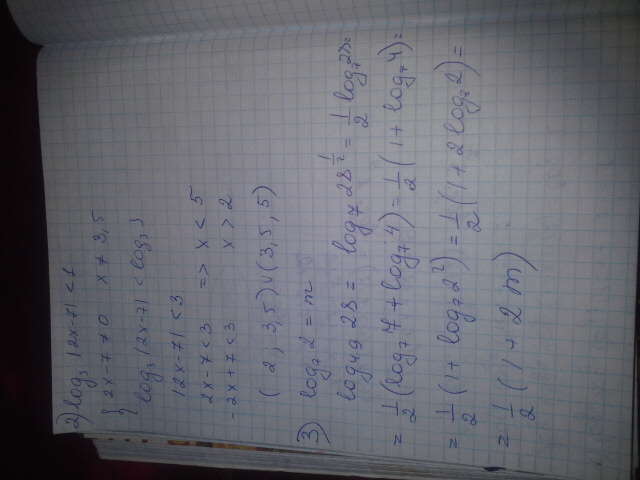 2) log₃ |2x-7| < 1
{ 2x-7≠0 x ≠ 3,5
log₃ |2x-7| < log₃ 3
|2x-7| < 3
2x-7<3 => x < 5
-2x+7<3 x > 2
(2, 3,5)∪(3,5, 5)
3) log₇ 2 = m
log₄₉ 28 = log₇ 28^(1/2) = 1/2 log₇ 28 =
= 1/2 (log₇ 7 + log₇ 4) = 1/2 (1 + log₇ 4) =
= 1/2 (1 + log₇ 2²) = 1/2 (1 + 2 log₇ 2) =
= 1/2 (1 + 2 m)